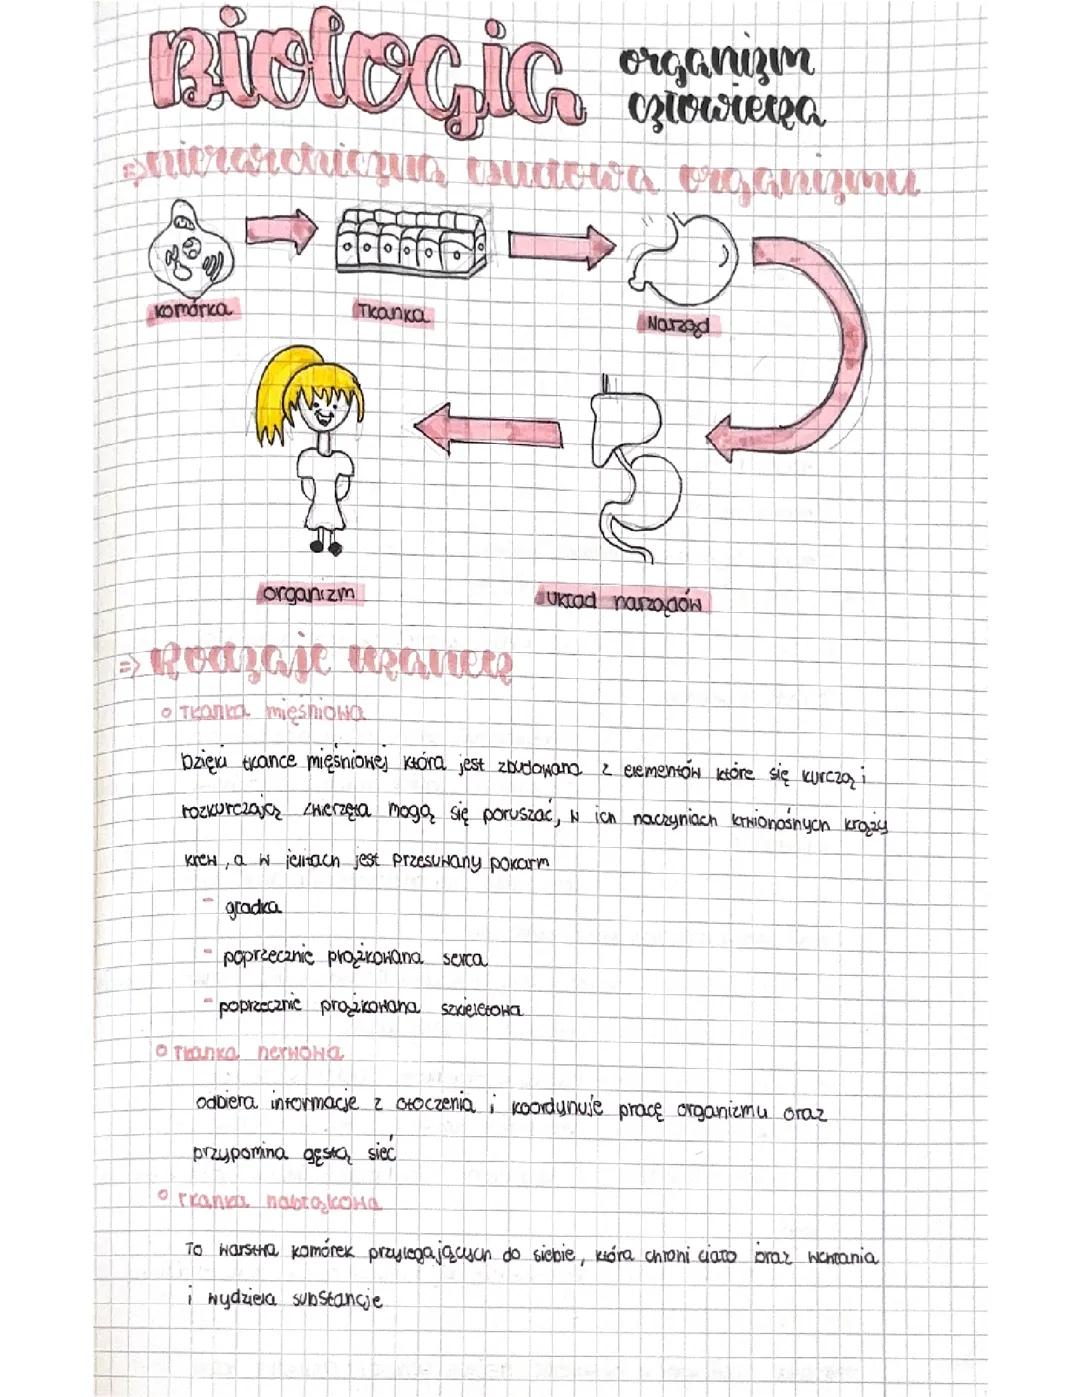 Biologia
organizm
człowieka
⇒ hierarchiczna budowa organizmu
komórka
Tkanka
Narząd
organizm
układ narządów
⇒ Rodzaje tkanek
Tkanka mięśniowa
Dzięki tkance mięśniowej która jest zbudowana z elementów które się kurczą i
rozkurczają zwierzęta mogą się poruszać, w ich naczyniach krwionośnych krąży
krew, a w jelitach jest przesuwany pokarm
- gładka
- poprzecznie prążkowana serca
- poprzecznie prążkowana szkieletowa
Tkanka nerwowa
odbiera informacje z otoczenia i koordynuje pracę organizmu oraz
przypomina gęstą sieć
Tkanka nabłąkowa
To warstwa komórek przylegających do siebie, która chroni ciało oraz wchłania
i wydziela substancje